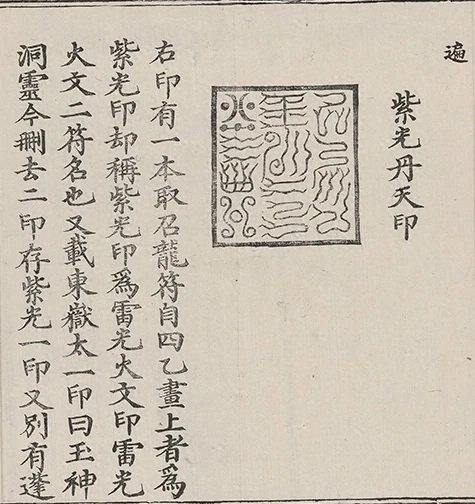 遍
紫光丹天印
右印有一本取召龍符自四乙畫上者為
紫光印却稱紫光印為雷光火文印雷光
火文二符名也又載東嶽太一印曰玉神
洞靈今刪去二印存紫光一印又別有蓬